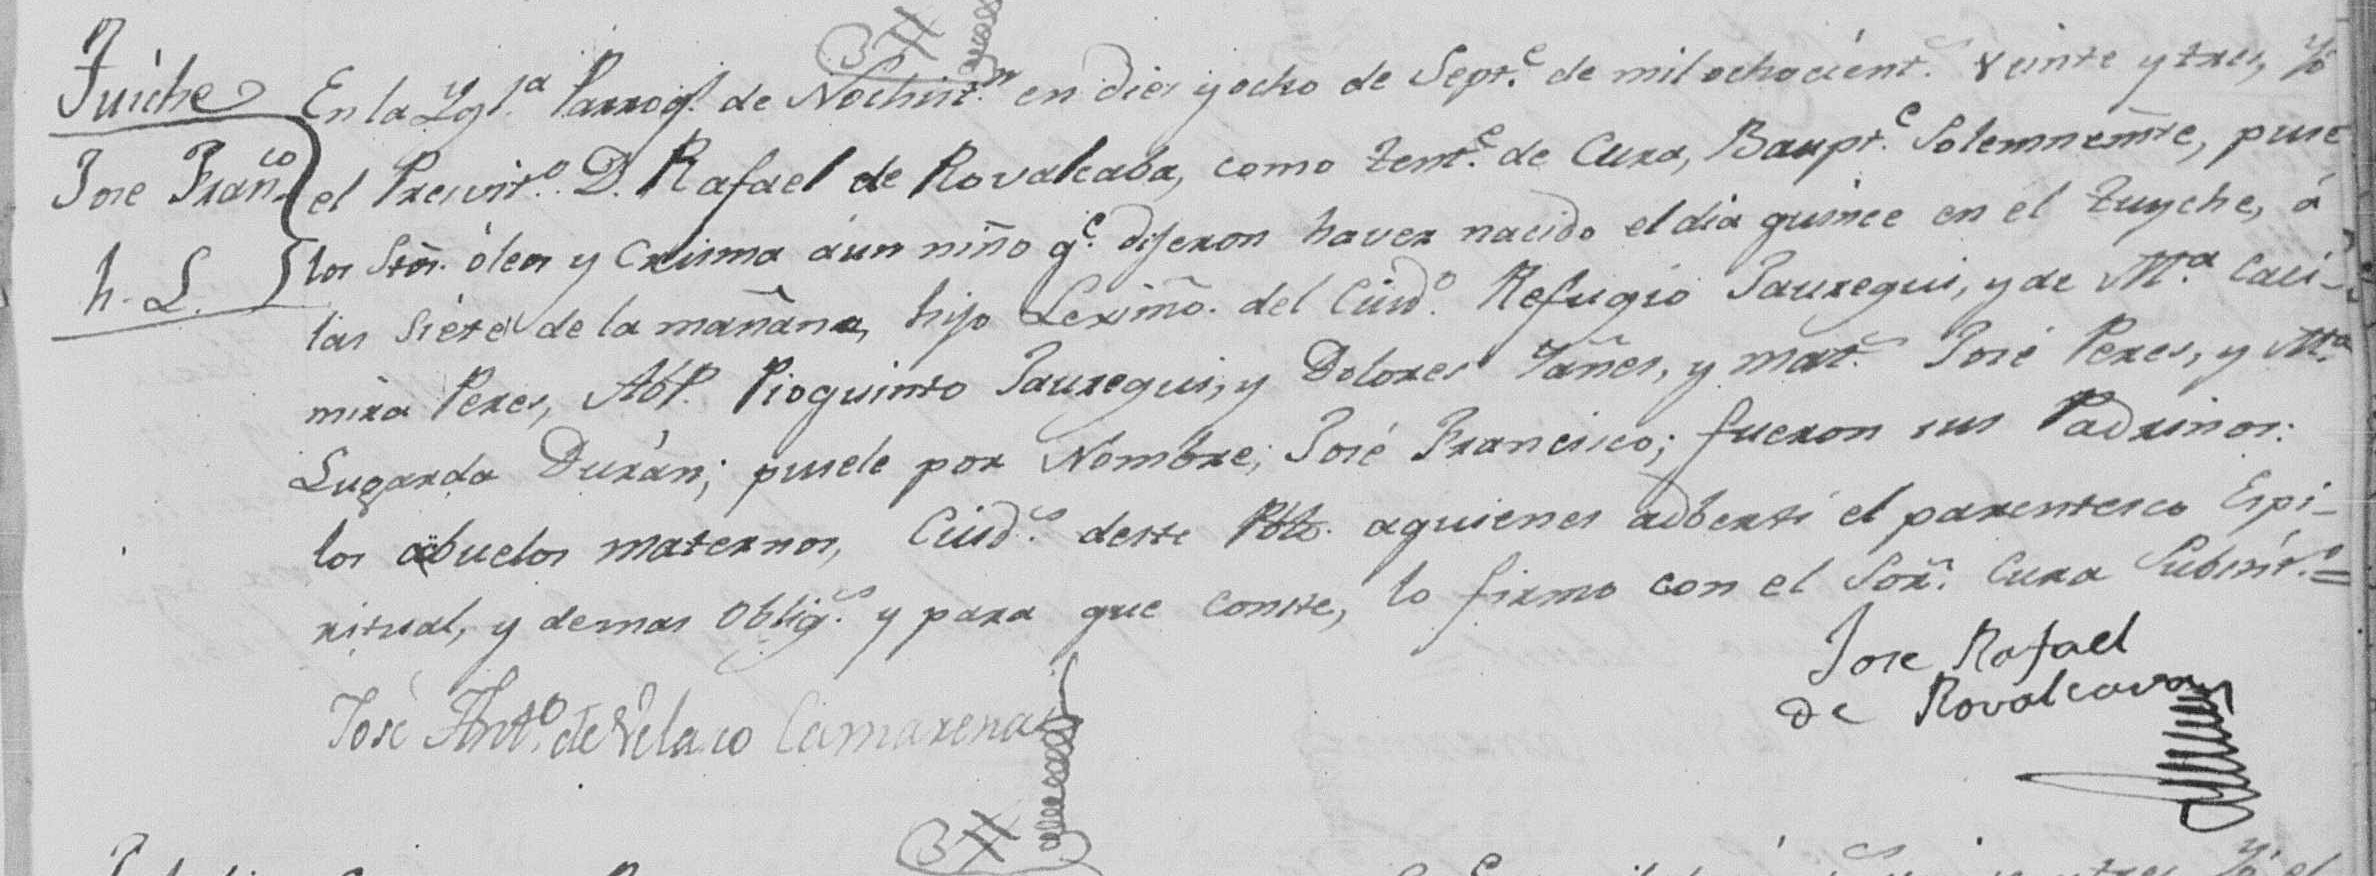 Tuiche
Jose Fran.co
h. L.
En la Ygl.a Parroq.l de Nochist.n en dies y ocho de Sept.e de mil ochocient.s veinte y tres, Yo
el Presvit.o D. Rafael de Rovalcaba, como tent.e de Cura, Baupt.e Solemnem̃te, puse
los Stõs. óleos y Crisma á un niño q.e dijeron haver nacido el dia quince en el Tuyche, á
las Siete de la mañana, hijo Lexim̃o. del Ciud.o Refugio Jauregui, y de M.a Caci-
mira Peres, Ab.s P.s Pioquinto Jauregui, y Dolores Yañes, y mat.s José Peres, y M.a
Lugarda Durán; pusele por Nombre, José Francisco; fueron sus Padrinos:
los abuelos maternos, Ciud.s deste Pbto. aquienes adbertí el parentesco Espi-
ritual, y demas oblig.s y para que conste, lo firmo con el Sor̃. Cura
José Ant.o de Velasco Camarena
Jose Rafael
de Rovalcava